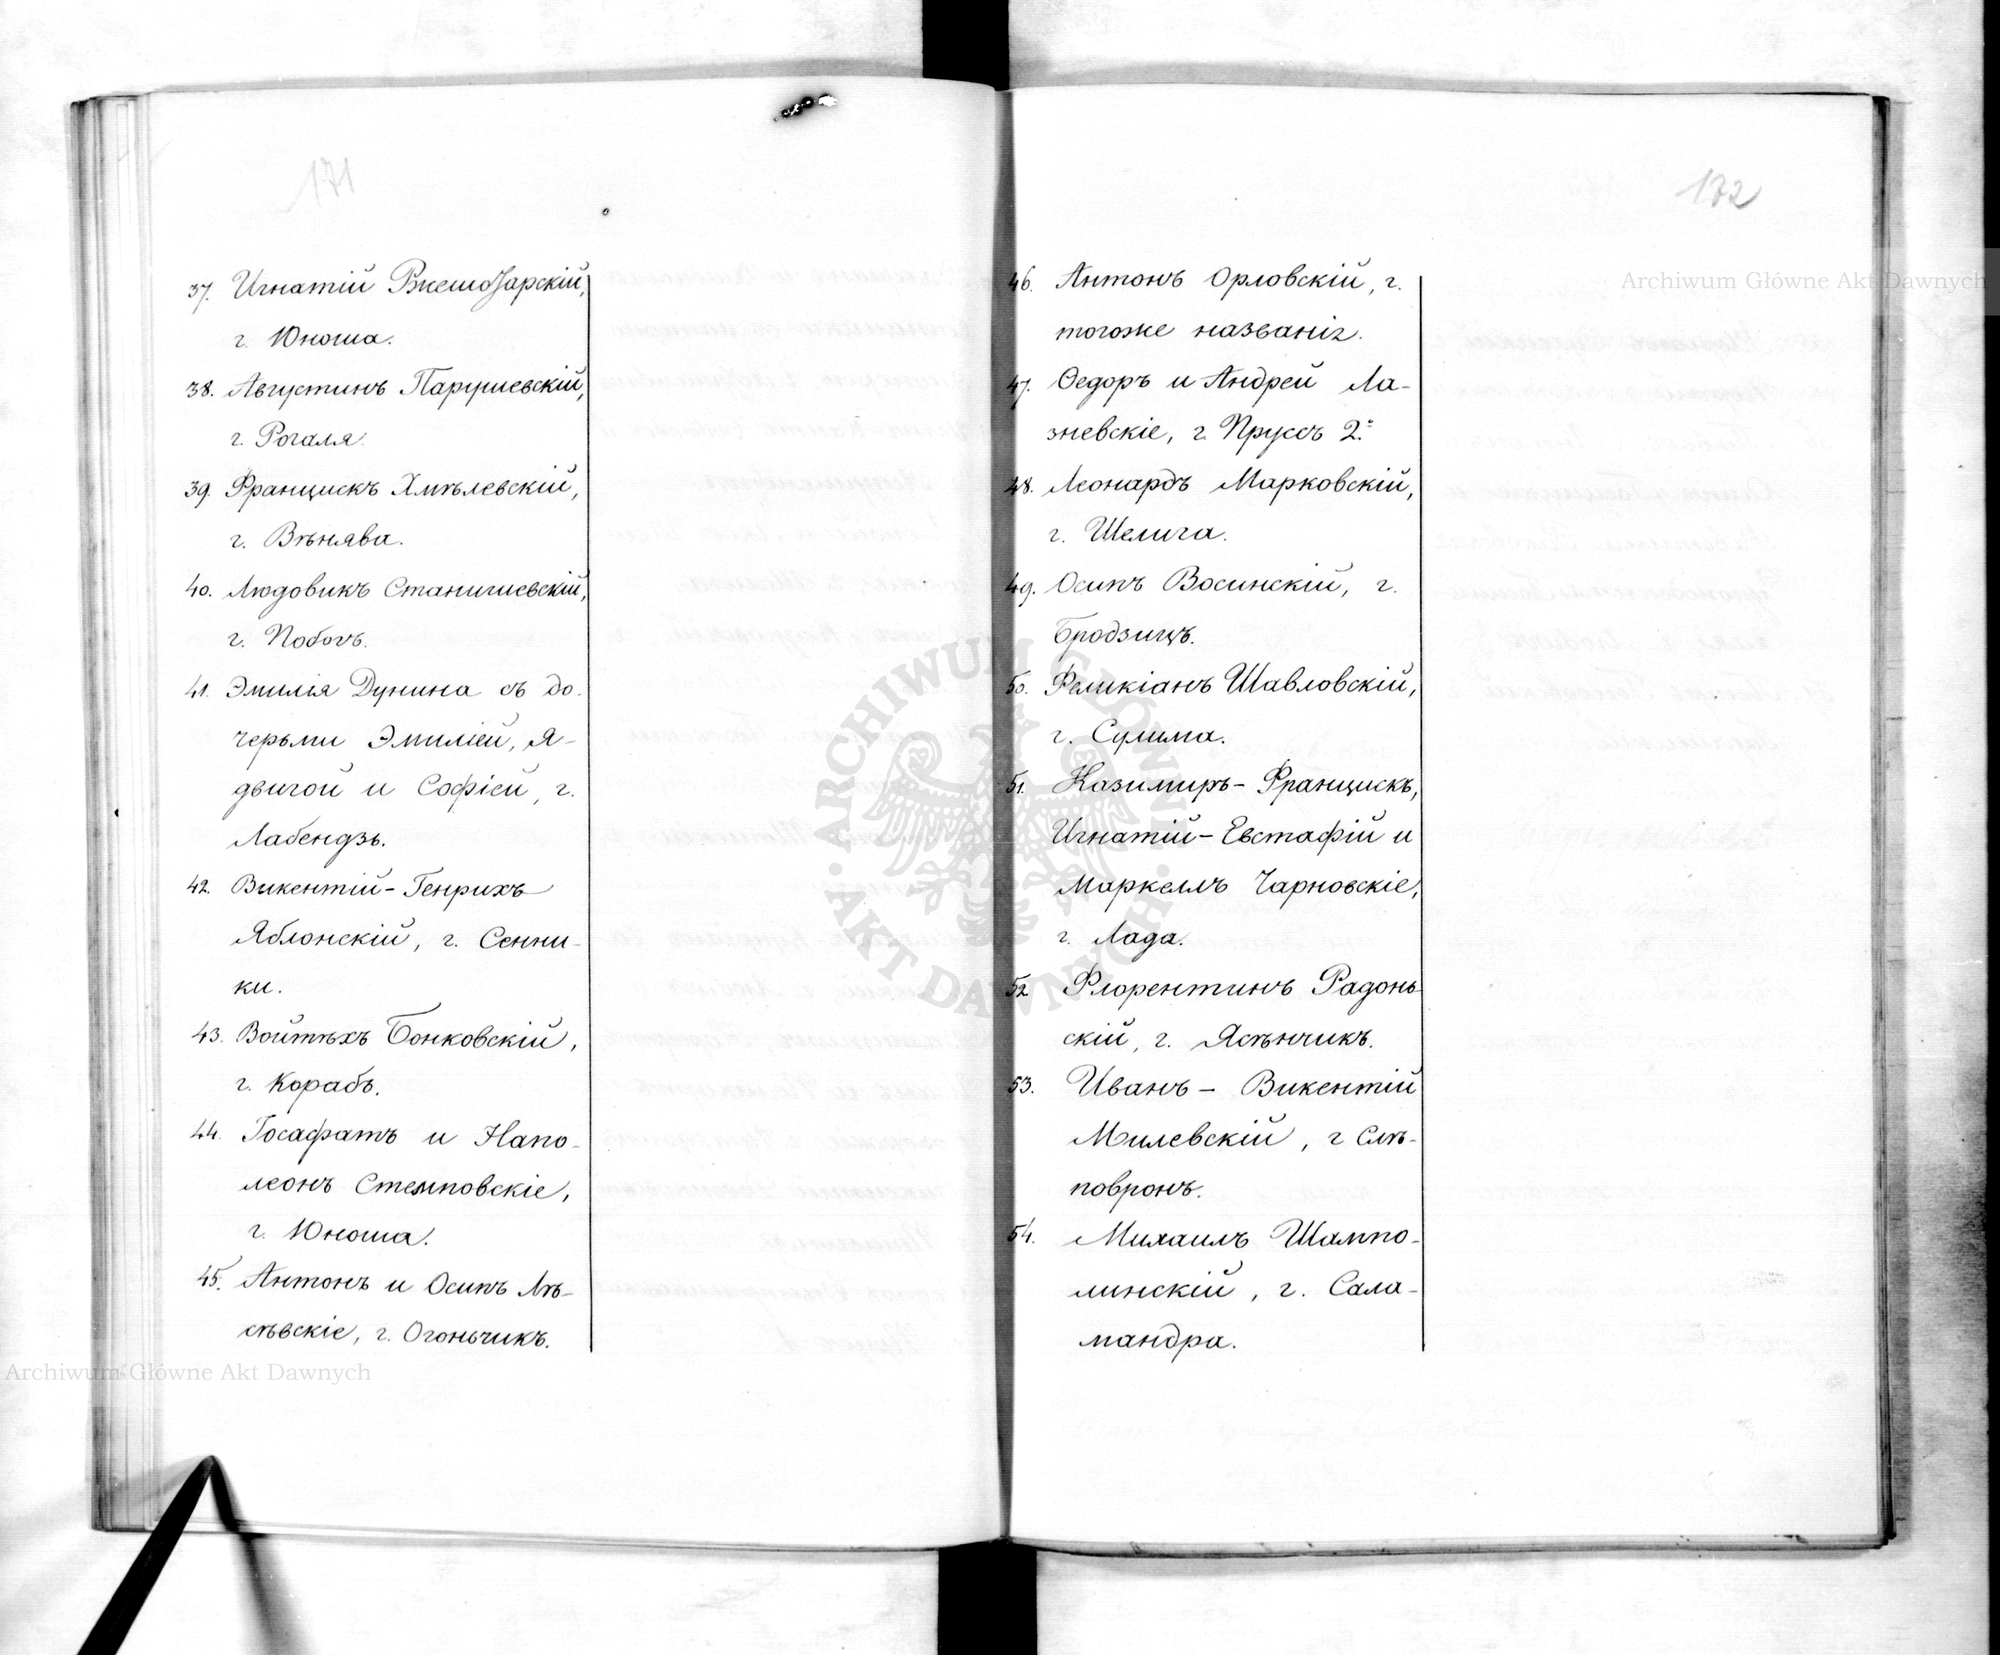 171
37. Игнатій Вкешо[арскій,
г. Юноша.
38. Августинъ Парушевскій,
г. Рогаля.
39. Францискъ Хмѣлевскій,
г. Вѣнява.
40. Людовикъ Станишевскій,
г. Побогъ.
41. Эмилія Дунина съ до-
черьми Эмиліей, Я-
двигой и Софіей, г.
Лабендзь.
42. Викентій-Генрихъ
Яблонскій, г. Сенни-
ки.
43. Войтѣхъ Бонковскій,
г. Корабъ.
44. Іосафатъ и Напо-
леонъ Стемповскіе,
г. Юноша.
45. Антонъ и Осипъ Лѣ-
сѣвскіе, г. Огоньчикъ.
172
46. Антонъ Орловскій, г.
тогоже названія.
47. Ѳедоръ и Андрей Ла-
зневскіе, г. Пруссъ 2.
48. Леонардъ Марковскій,
г. Шелига.
49. Осипъ Восинскій, г.
Бродзицъ.
50. Феликіанъ Шавловскій,
г. Сулима.
51. Казимиръ-Францискъ,
Игнатій-Евстафій и
Маркеллъ Чарновскіе,
г. Лада.
52 Флорентинъ Радонь-
скій, г. Ясѣнчикъ.
53. Иванъ-Викентій
Милевскій, г Слѣ-
повронъ.
54. Михаилъ Шампо-
линскій, г. Сала-
мандра.
Archiwum Główne Akt Dawnych
Archiwum Główne Akt Dawnych
ARCHIWUM GŁÓWNE · AKT DAWNYCH ·